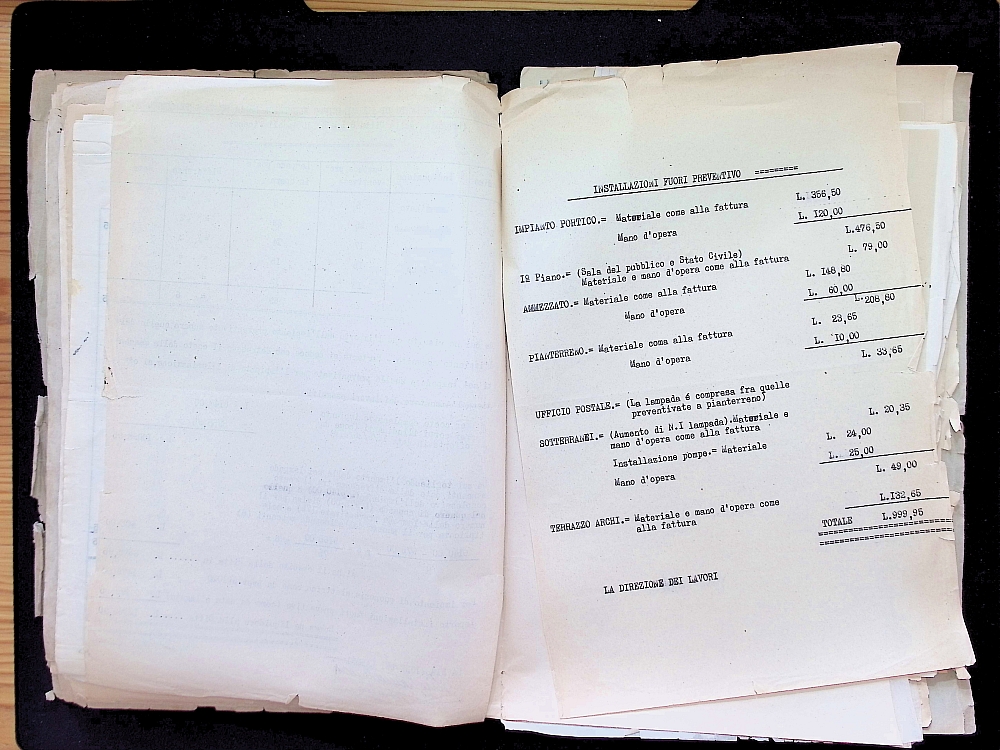 INSTALLAZIONI FUORI PREVENTIVO =========
IMPIANTO PORTICO.= Materiale come alla fattura L. 356,50
Mano d'opera L. I20,00
L.476,50
Iº Piano.= (Sala del pubblico e Stato Civile)
Materiale e mano d'opera come alla fattura L. 79,00
AMMEZZATO.= Materiale come alla fattura L. I48,80
Mano d'opera L. 60,00
L.208,80
PIANTERRENO.= Materiale come alla fattura L. 23,65
Mano d'opera L. I0,00
L. 33,65
UFFICIO POSTALE.= (La lampada é compresa fra quelle
preventivate a pianterreno)
SOTTERRANEI.= (Aumento di N.I lampada).Materiale e
mano d'opera come alla fattura L. 20,35
Installazione pompe.= Materiale L. 24,00
Mano d'opera L. 25,00
L. 49,00
TERRAZZO ARCHI.= Materiale e mano d'opera come
alla fattura L.I32,65
TOTALE L.999,95
LA DIREZIONE DEI LAVORI